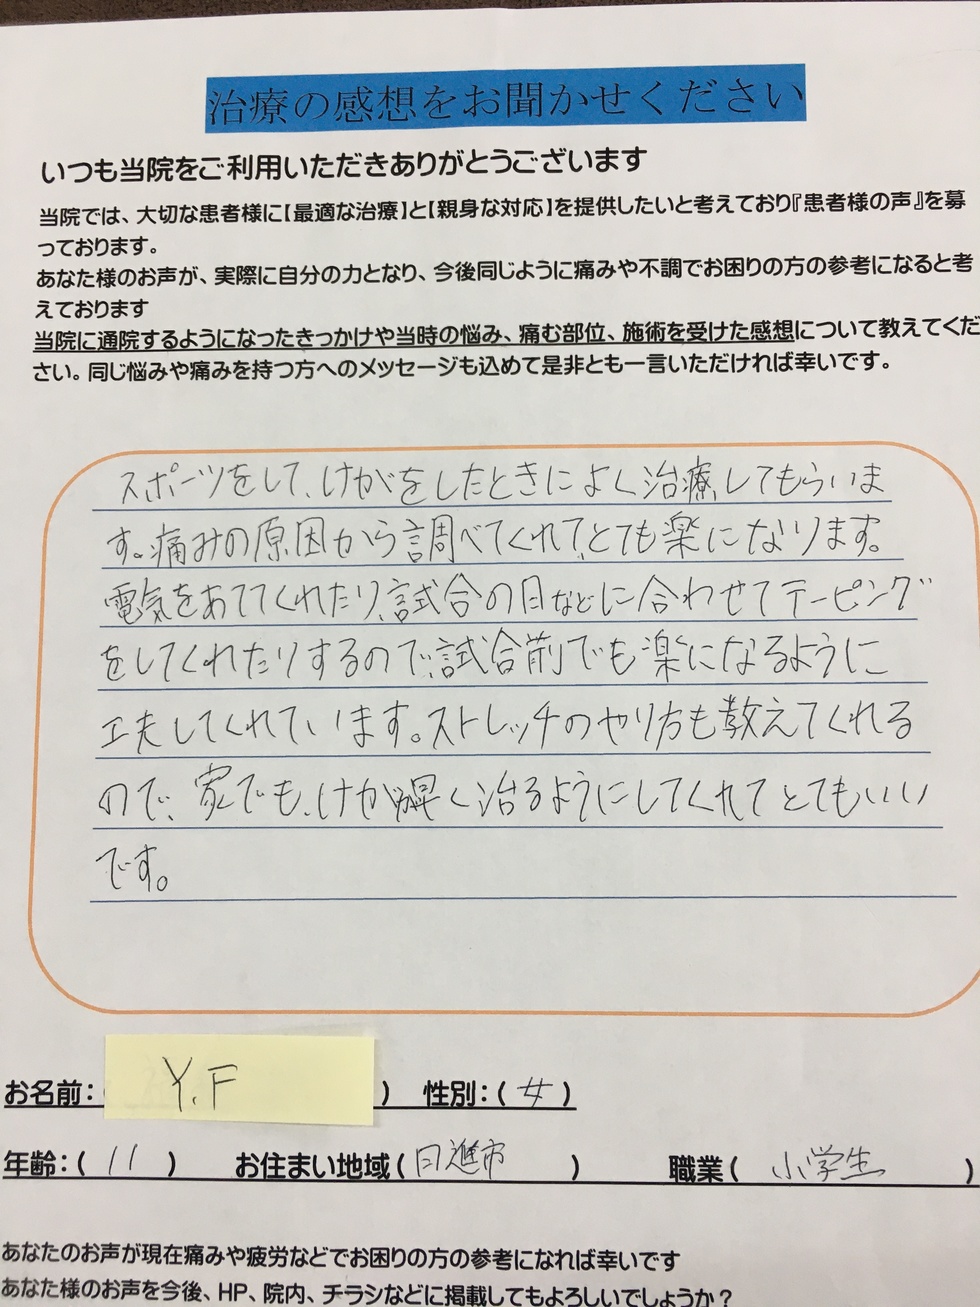 治療の感想をお聞かせください
いつも当院をご利用いただきありがとうございます
当院では、大切な患者様に【最適な治療】と【親身な対応】を提供したいと考えており『患者様の声』を募
っております。
あなた様のお声が、実際に自分の力となり、今後同じように痛みや不調でお困りの方の参考になると考
えております
当院に通院するようになったきっかけや当時の悩み、痛む部位、施術を受けた感想について教えてくだ
さい。同じ悩みや痛みを持つ方へのメッセージも込めて是非とも一言いただければ幸いです。
スポーツをして、けがをしたときによく治療してもらいま
す。痛みの原因から調べてくれて、とても楽になります。
電気をあててくれたり、試合の日などに合わせてテーピング
をしてくれたりするので、試合前でも楽になるように
工夫してくれています。ストレッチのやり方も教えてくれる
ので、家でも、けがが早く治るようにしてくれてとてもいい
です。
お名前：( Y.F ) 性別：( 女 )
年齢：( 11 ) お住まい地域( 日進市 ) 職業( 小学生 )
あなたのお声が現在痛みや疲労などでお困りの方の参考になれば幸いです
あなた様のお声を今後、HP、院内、チラシなどに掲載してもよろしいでしょうか？